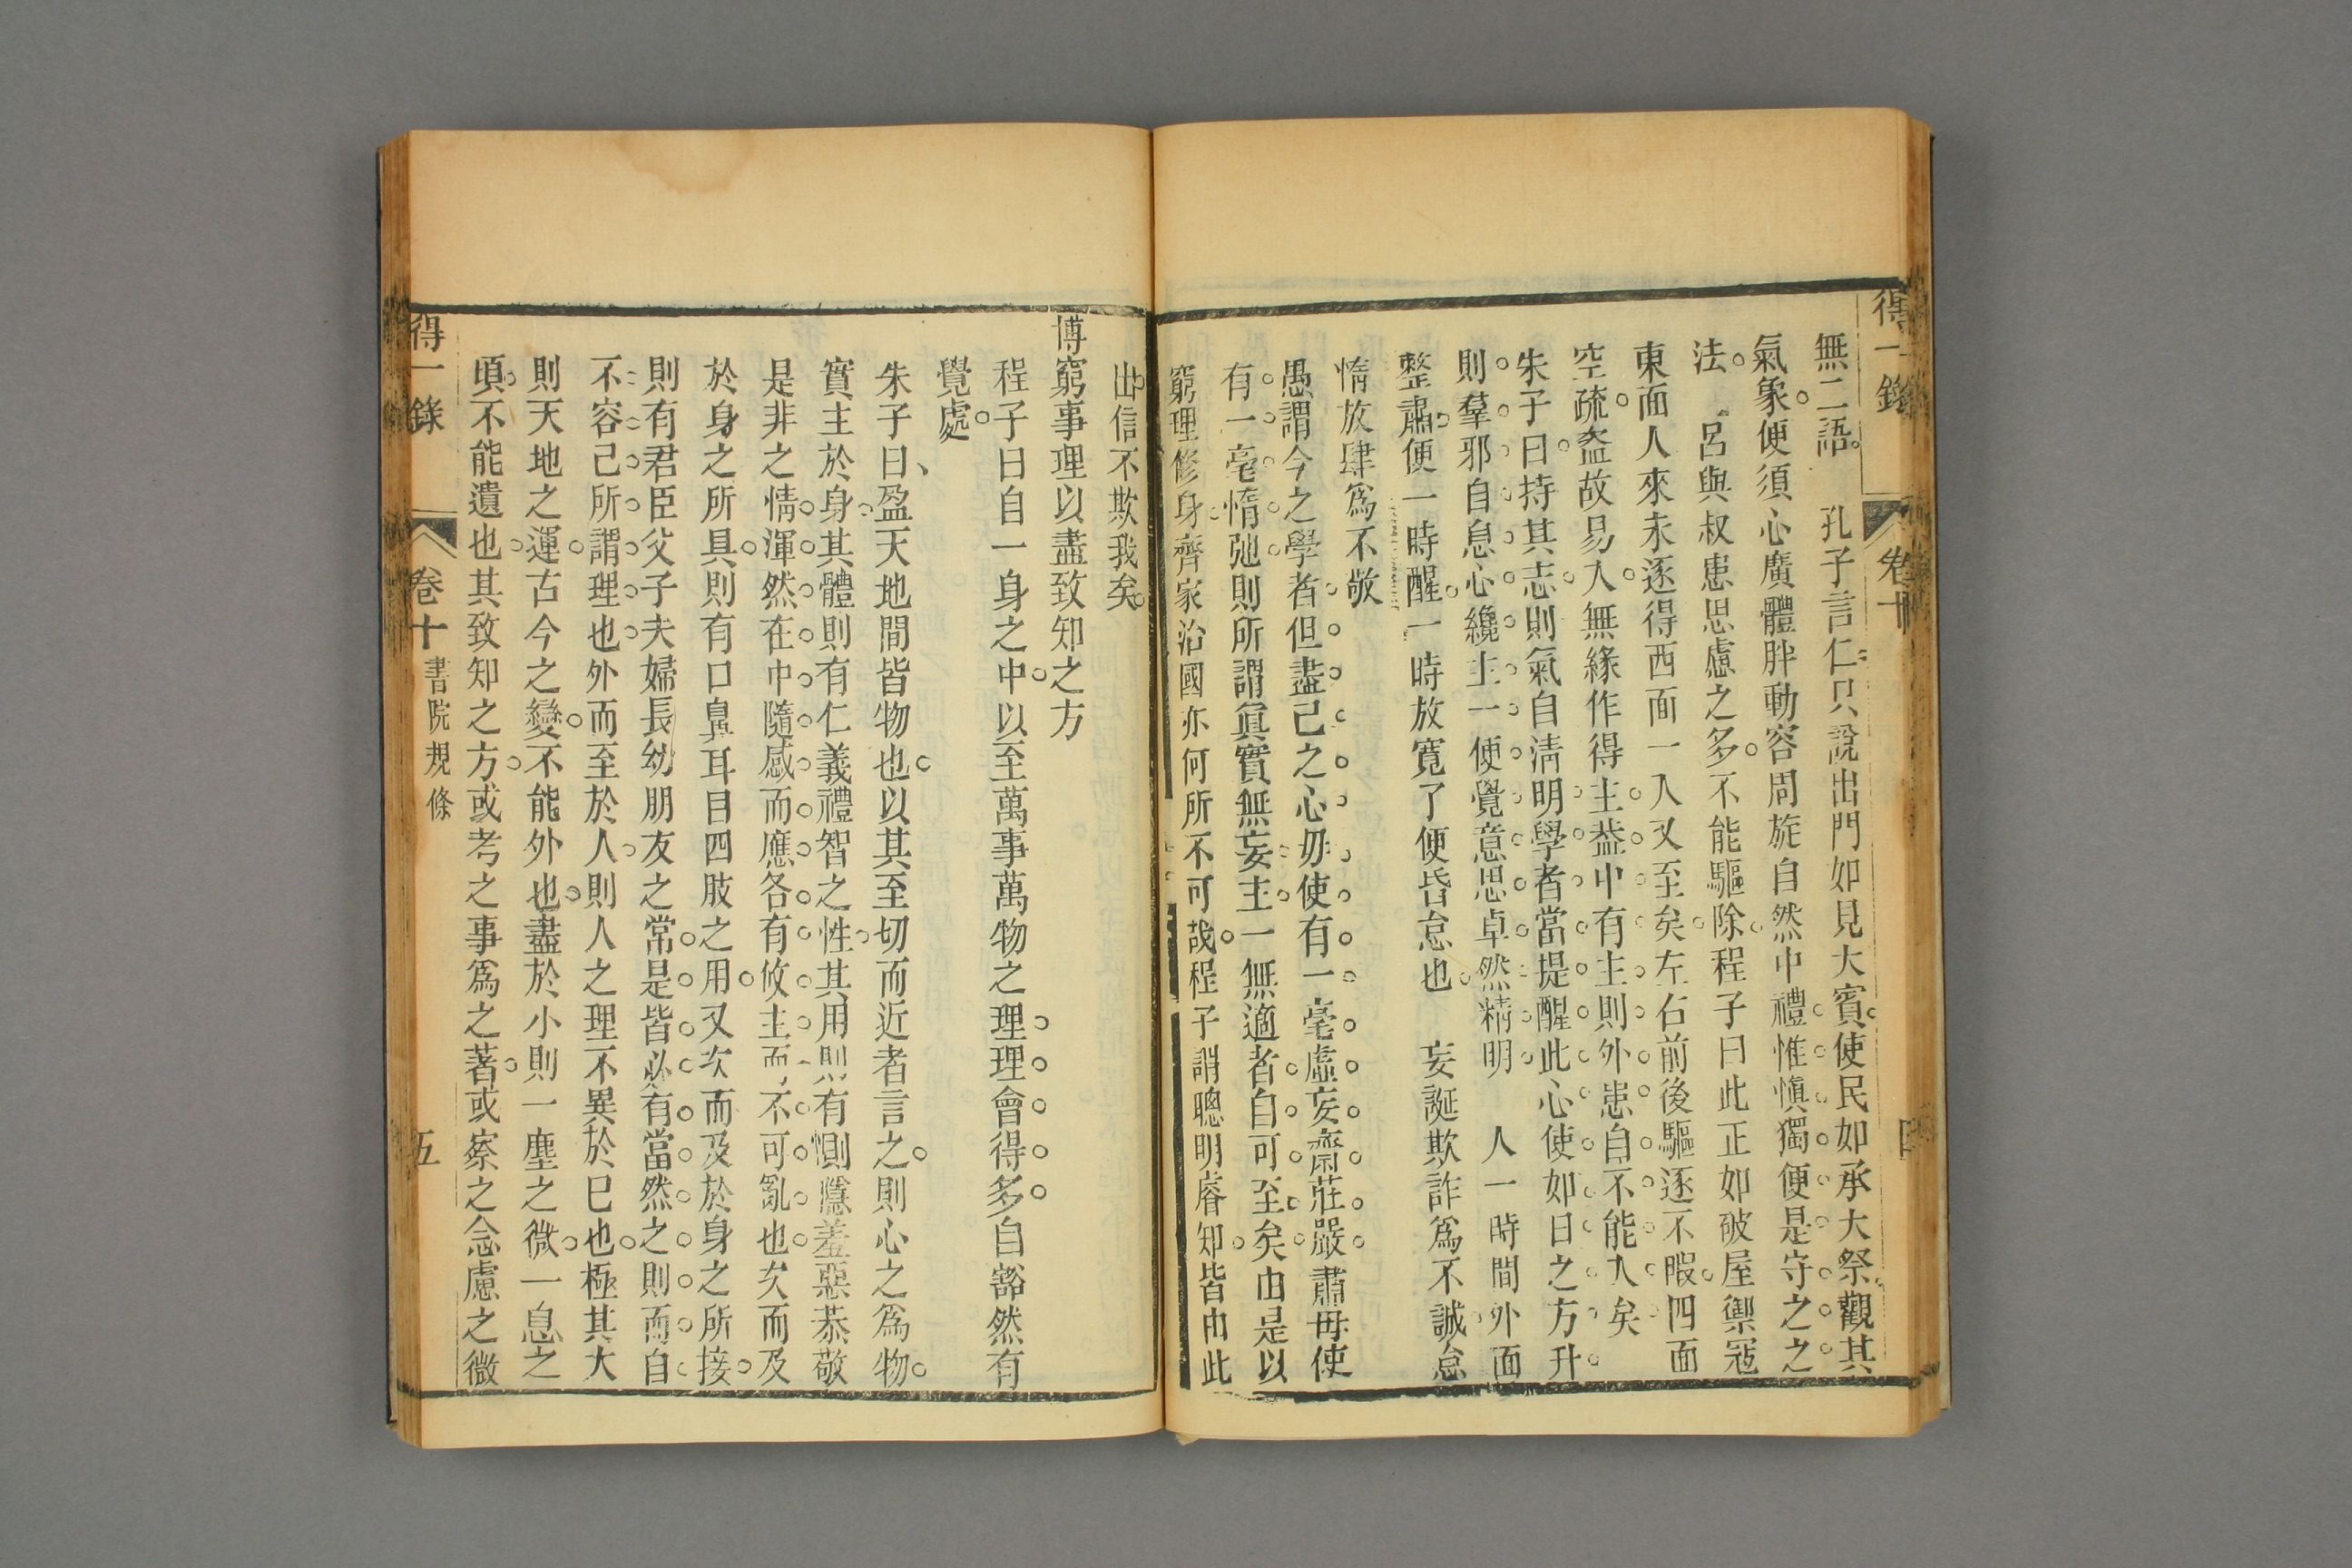 得一錄 卷十 四
無二語 孔子言仁只說出門如見大賓使民如承大祭觀其
氣象便須心廣體胖動容周旋自然中禮惟愼獨便是守之之
法 呂與叔患思慮之多不能驅除程子曰此正如破屋禦寇
東面人來未逐得西面一人又至矣左右前後驅逐不暇四面
空疏盜故易入無緣作得主葢中有主則外患自不能入矣
朱子曰持其志則氣自淸明學者當提醒此心使如日之方升
則羣邪自息心纔主一便覺意思卓然精明 人一時間外面
整肅便一時醒一時放寛了便昏怠也 妄誕欺詐爲不誠怠
惰放肆爲不敬
愚謂今之學者但盡己之心毋使有一毫虛妄齋莊嚴肅毋使
有一毫惰弛則所謂眞實無妄主一無適者自可至矣由是以
窮理修身齊家治國亦何所不可哉程子謂聰明睿知皆由此
出信不欺我矣
博窮事理以盡致知之方
程子曰自一身之中以至萬事萬物之理理會得多自豁然有
覺處
朱子曰盈天地間皆物也以其至切而近者言之則心之爲物
實主於身其體則有仁義禮智之性其用則有惻隱羞惡恭敬
是非之情渾然在中隨感而應各有攸主而不可亂也次而及
於身之所具則有口鼻耳目四肢之用又次而及於身之所接
則有君臣父子夫婦長幼朋友之常是皆必有當然之則而自
不容己所謂理也外而至於人則人之理不異於巳也極其大
則天地之運古今之變不能外也盡於小則一塵之微一息之
頃不能遺也其致知之方或考之事爲之著或察之念慮之微
得一錄 卷十 書院規條 五